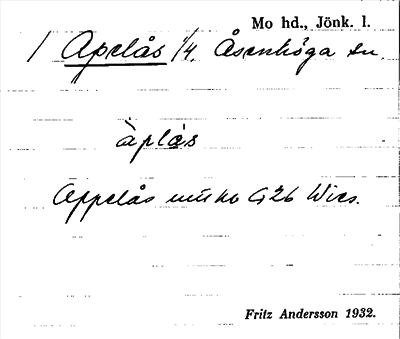 Mo hd., Jönk. l.
/ Apelås 1/4. Åsenhöga sn.
àplås
Appelås G26 Wies.
Fritz Andersson 1932.